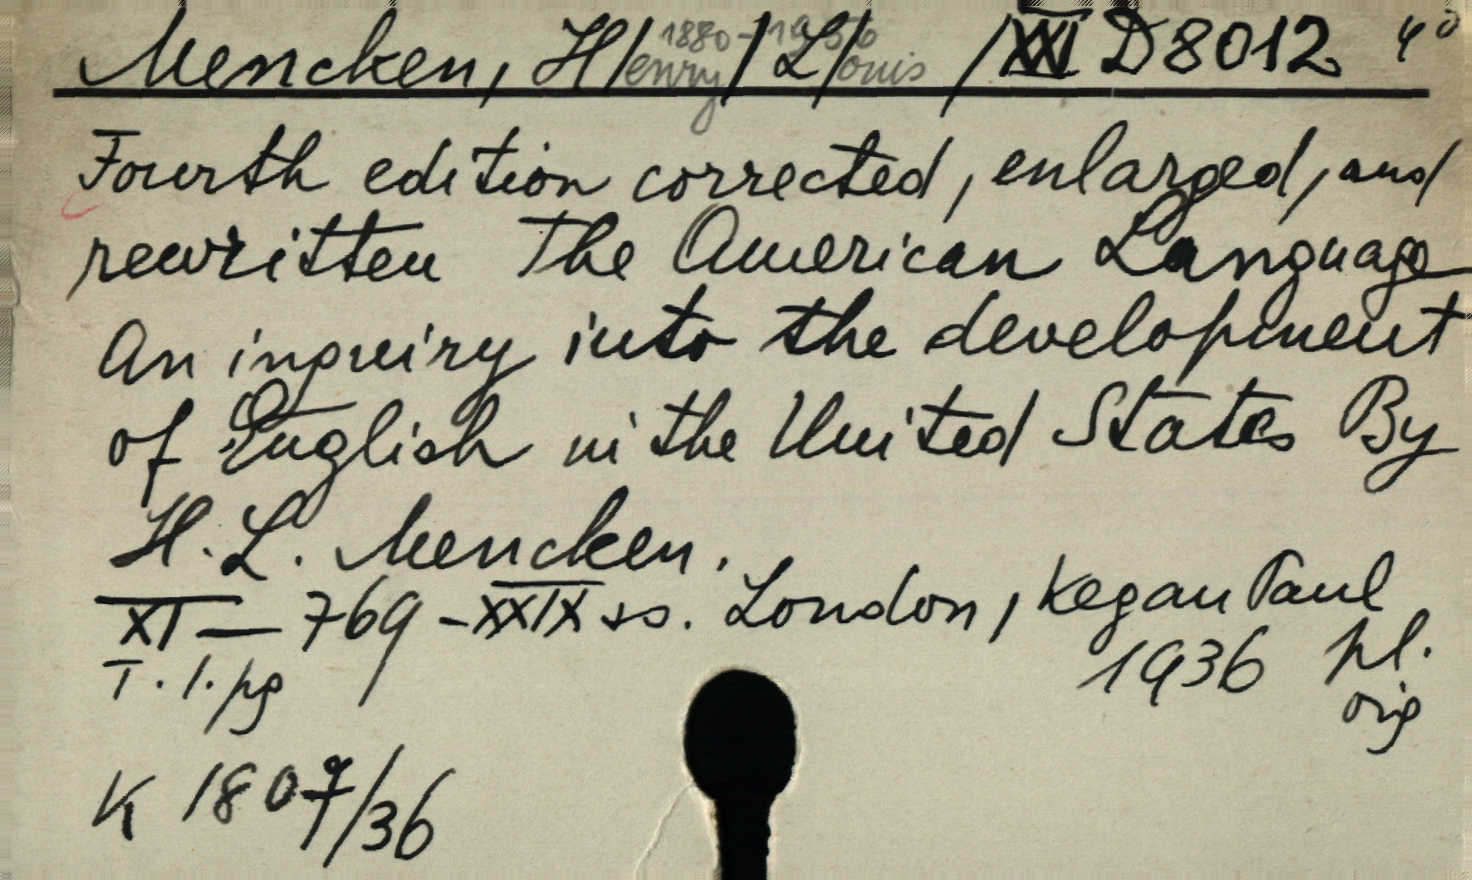 Mencken, H/enry/ L/ouis/ 1880-1956 XXI D8012 4°
Fourth edition corrected, enlarged, and
rewritten The American Language
An inquiry into the development
of English in the United States By
H. L. Mencken.
XI — 769 - XXIX ss. London, Kegan Paul
1936 pl.
T. l. pg orig
K 1807/36